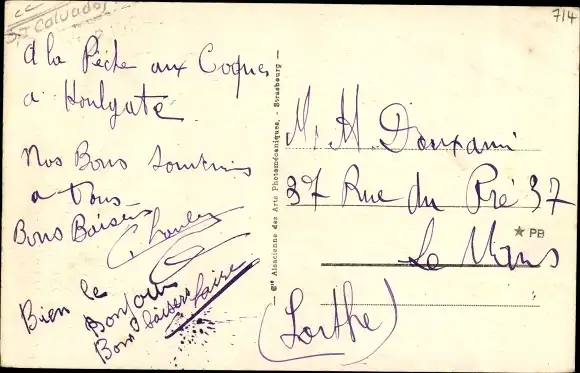 Calvados
714
A la Pêche aux Coques
a Houlgate
Nos Bons Souvenirs
a Vous
Bons Baisers
Bien le
Bonjour
Bons baisers
Cie Alsacienne des Arts Photomécaniques, - Strasbourg -
M. H. Douxami
37 Rue du Pré 37
★ PB
Le Mans
(Sarthe)